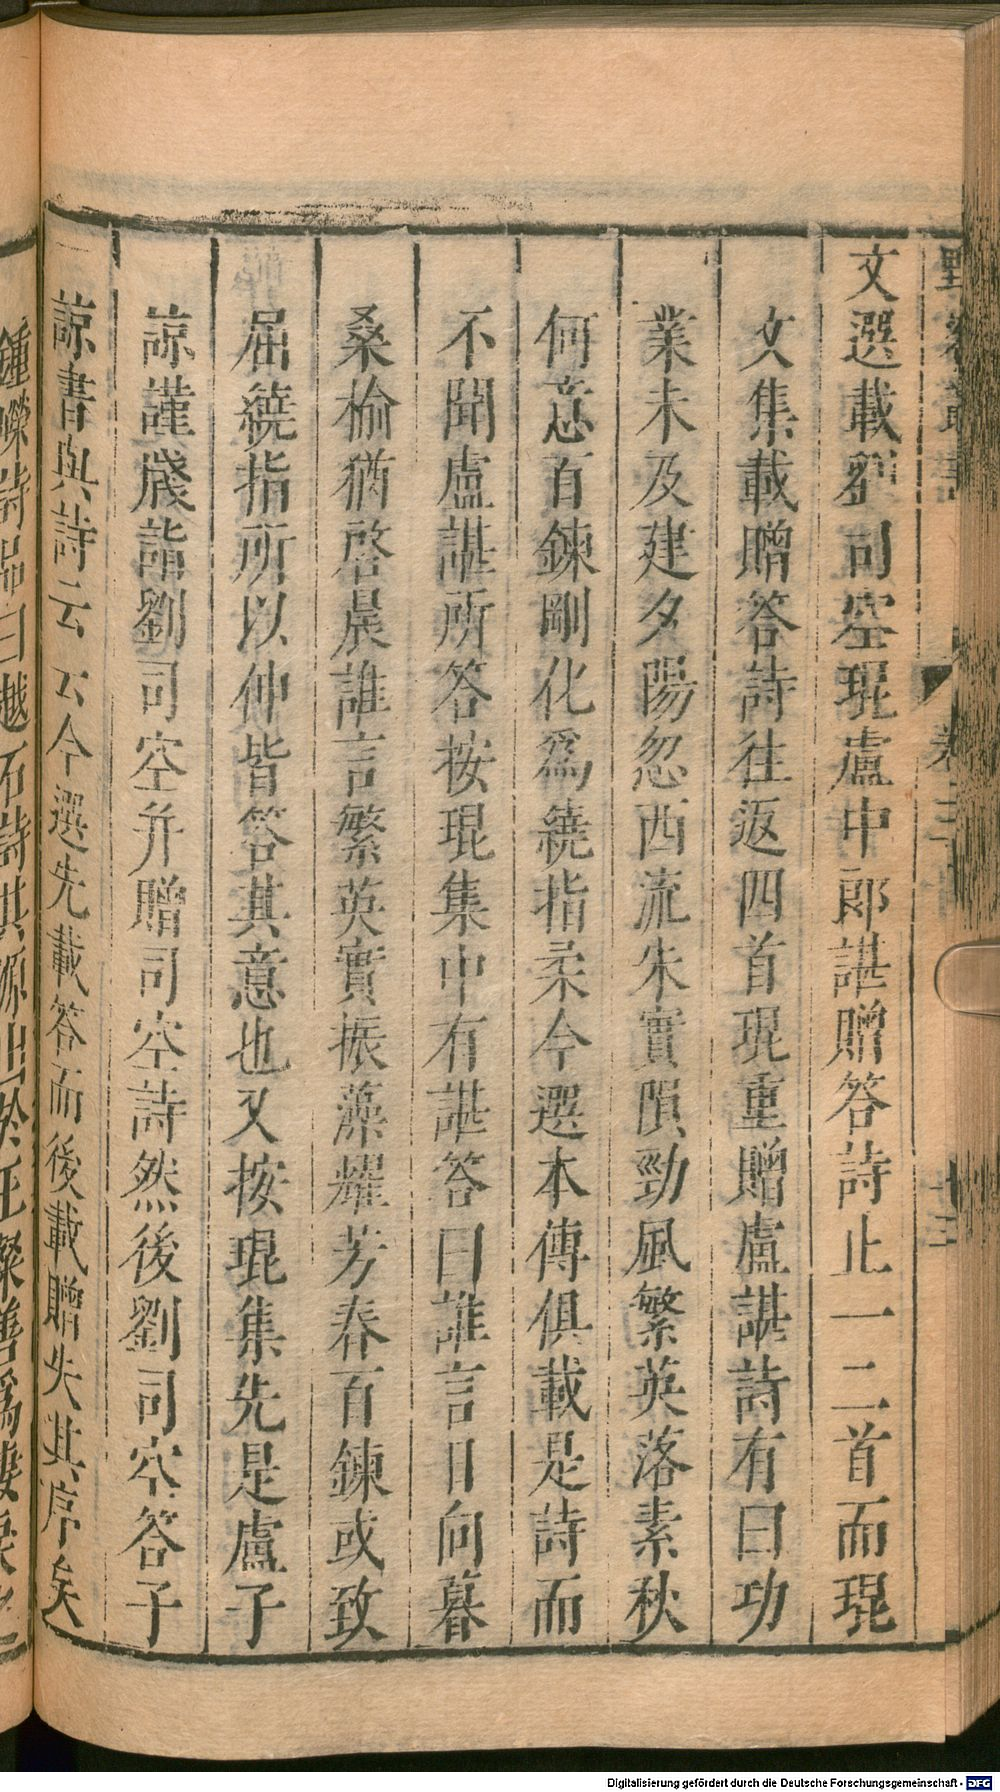 文選載劉司空琨盧中郎諶贈答詩止一二首而琨
文集載贈答詩往返四首琨重贈盧諶詩有曰功
業未及建夕陽忽西流朱實隕勁風繁英落素秋
何意百鍊剛化為繞指柔今選本傳俱載是詩而
不聞盧諶所答按琨集中有諶答曰誰言日向暮
桑榆猶啓晨誰言繁英實振藻耀芳春百鍊或致
屈繞指所以伸皆答其意也又按琨集先是盧子
諒謹牋詣劉司空并贈司空詩然後劉司空答子
諒書與詩云云今選先載答而後載贈失其序矣
鍾嶸詩品曰越石詩其源出於王粲善為悽戾之
卷三
十三
Digitalisierung gefördert durch die Deutsche Forschungsgemeinschaft - DFG